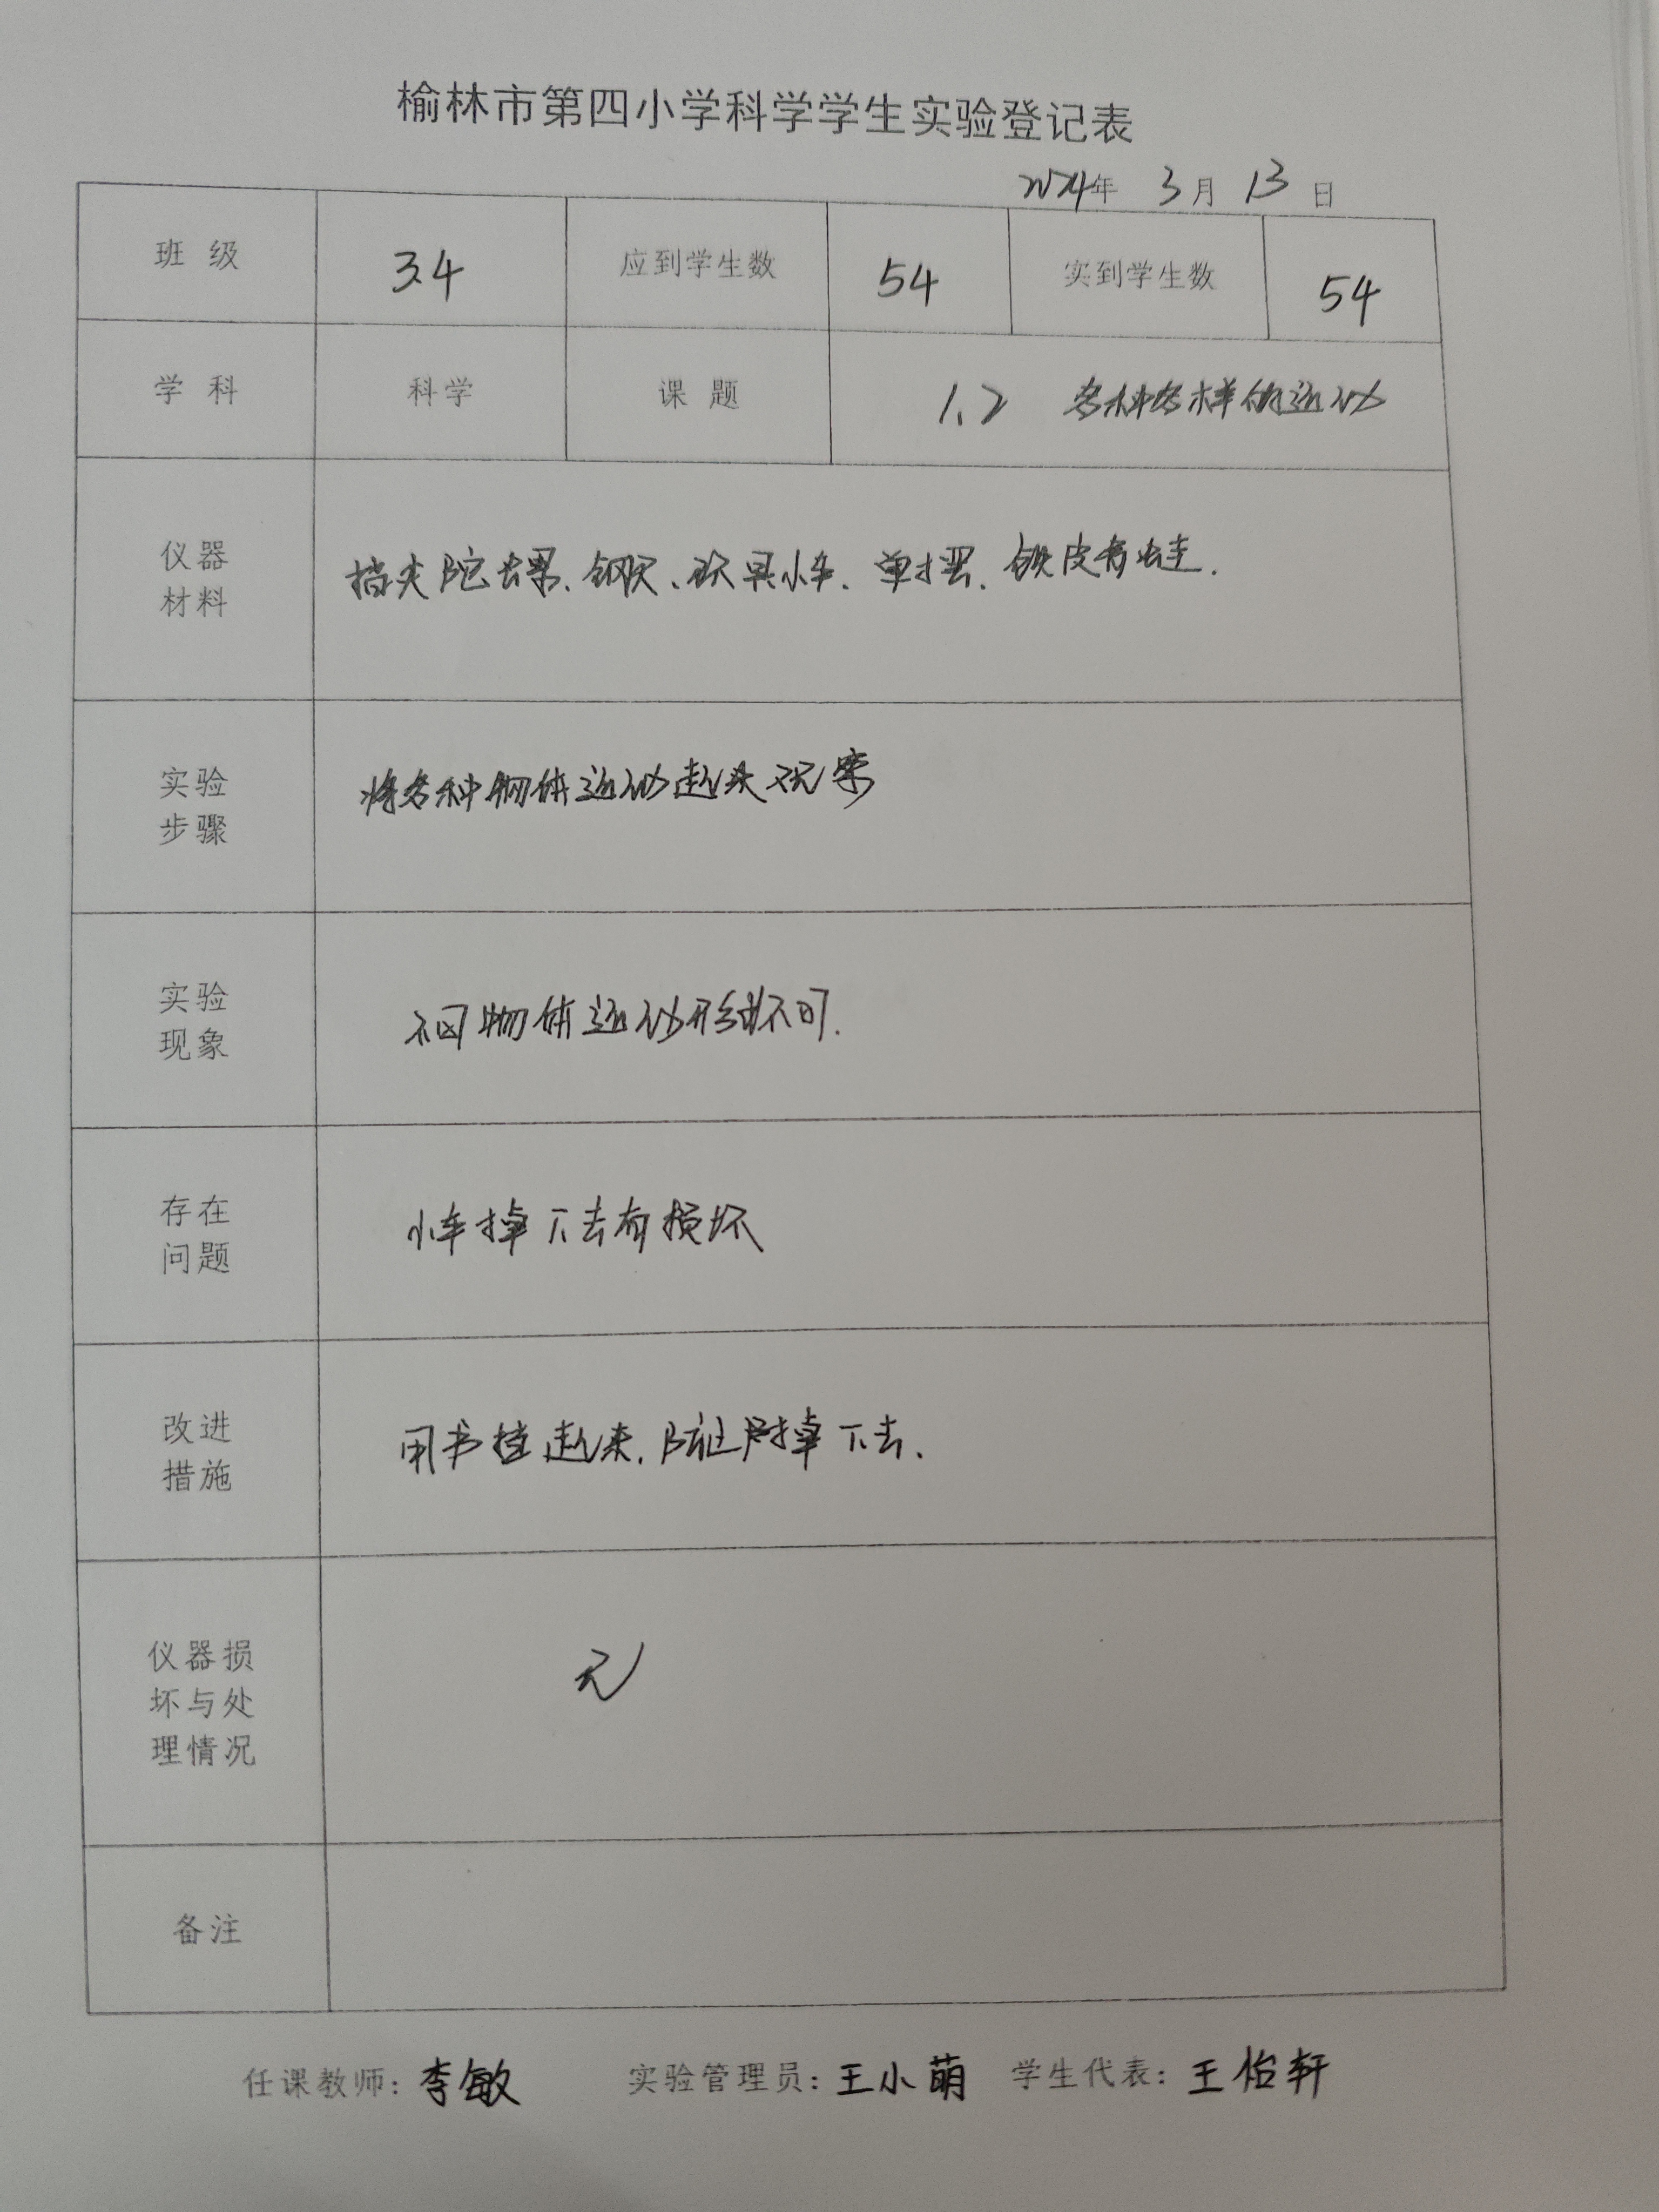 榆林市第四小学科学学生实验登记表
2024年 3月 13日
班 级 3.4 应到学生数 54 实到学生数 54
学 科 科学 课 题 1.2 各种各样的运动
仪器
材料
指尖陀螺、钢尺、玩具小车、单摆、铁皮青蛙.
实验
步骤
将各种物体运动起来观察
实验
现象
不同物体运动形式不同.
存在
问题
小车掉下去有损坏
改进
措施
用书挡起来,防止掉下去.
仪器损
坏与处
理情况
无
备注
任课教师: 李敏 实验管理员: 王小萌 学生代表: 王怡轩